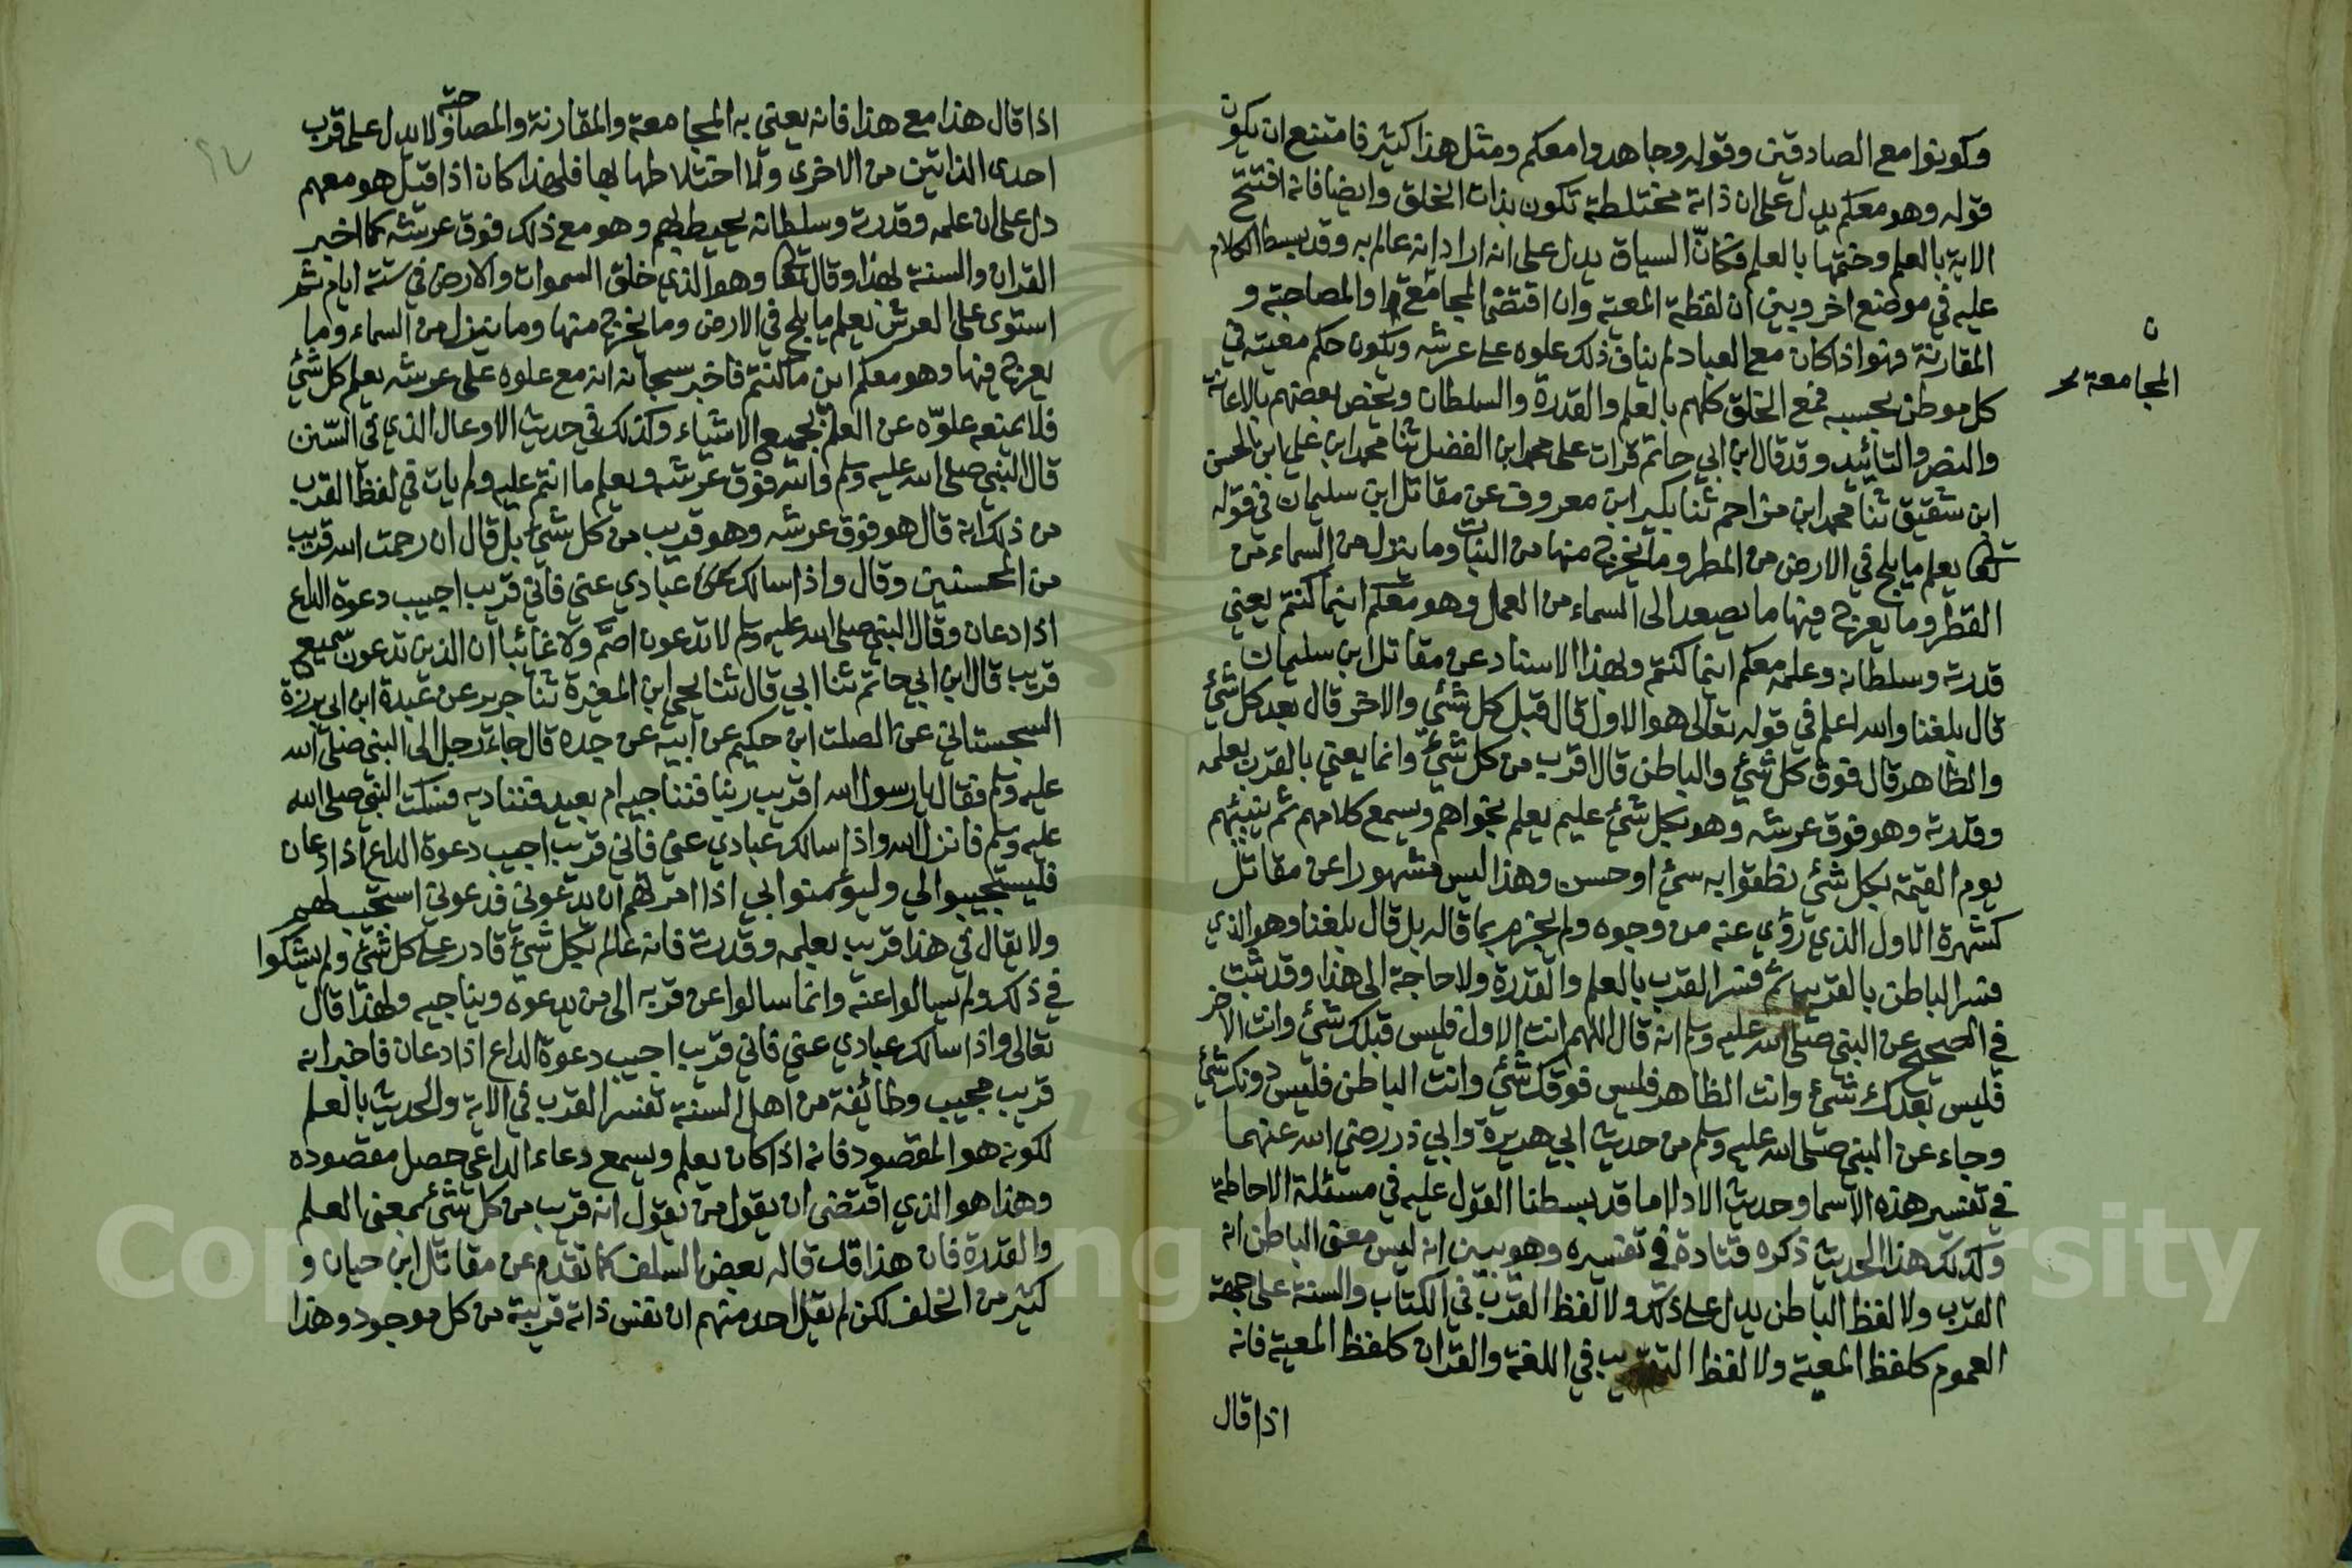 وكونوا مع الصادقين وقوله وجاهدوا معكم ومثل هذا كثير فامتنع ان يكون
قوله وهو معكم يدل على ان ذاته مختلطة تكون بذات الخلق وايضا فانه افتتح
الاية بالعلم وختمها بالعلم فكانّ السياق يدل على انه اراد انه عالم به وقد بسط الكلام
عليه في موضع اخر وبين ان لفظة المعية وان اقتضا المجامعة والمصاحبة و
ن المجامعة
المقارنة فهو اذا كان مع العباد لم يناف ذلك علوه على عرشه ويكون حكم معيته في
كل موطن بحسبه فمع الخلق كلهم بالعلم والقدرة والسلطان ويخص بعضهم بالاعانة
والنصر والتائيد وقد قال ابن ابي حاتم قرات على محمد ابن الفضل ثنا محمد ابن علي ابن الحسن
ابن شقيق ثنا محمد ابن مزاحم ثنا بكير ابن معروف عن مقاتل ابن سليمان في قوله
تعا يعلم ما يلج في الارض من المطر وما يخرج منها من النبات وما ينزل من السماء من
القطر وما يعرج فيها ما يصعد الى السماء من العمل وهو معكم اينما كنتم يعني
قدرته وسلطانه وعلمه معكم اينما كنتم وبهذا الاسناد عن مقاتل ابن سليمان
قال بلغنا والله اعلم في قوله تعالى هو الاول قال قبل كل شئ والاخر قال بعد كل شئ
والظاهر قال فوق كل شئ والباطن قال اقرب من كل شئ وانما يعني بالقرب بعلمه
وقدرته وهو فوق عرشه وهو بكل شئ عليم يعلم نجواهم ويسمع كلامهم ثم ينبئهم
يوم القيمة بكل شئ نطقوا به سئ او حسن وهذا ليس مشهورا عن مقاتل
كشهرة الاول الذي رؤي عنه من وجوه ولم يجزم بما قاله بل قال بلغنا وهو الذي
فسر الباطن بالقريب ثم فسر القرب بالعلم والقدرة ولا حاجة الى هذا وقد ثبت
في الصحيح عن النبي صلى الله عليه وسلم انه قال اللهم انت الاول فليس قبلك شئ وانت الاخر
فليس بعدك شئ وانت الظاهر فليس فوقك شئ وانت الباطن فليس دونك شئ
وجاء عن النبي صلى الله عليه وسلم من حديث ابي هريرة وابي ذر رضي الله عنهما
في تفسير هذه الاسما وحديث الادلا ما قد بسطنا القول عليه في مسئلة الاحاطة
وكذلك هذا الحديث ذكره قتادة في تفسيره وهو يبين انه ليس معنى الباطن انه
القرب ولا لفظ الباطن يدل على ذلك ولا لفظ القرب في الكتاب والسنة على جهة
العموم كلفظ المعية ولا لفظ القريب في اللغة والقران كلفظ المعية فانه
اذا قال
اذا قال هذا مع هذا فانه يعني به المجامعة والمقارنة والمصاحبة ولا يدل على قرب
احدى الذاتين من الاخرى ولا اختلاطها بها فلهذا كان اذا قيل هو معهم
دل على ان علمه وقدرته وسلطانه يحيط بهم وهو مع ذلك فوق عرشه كما اخبر
القران والسنة بهذا وقال تعا وهو الذي خلق السموات والارض في ستة ايام ثم
استوى على العرش يعلم ما يلج في الارض وما يخرج منها وما ينزل من السماء وما
يعرج فيها وهو معكم اين ما كنتم فاخبر سبحانه انه مع علوه على عرشه يعلم كل شئ
فلا يمنعه علوّه عن العلم بجميع الاشياء وكذلك في حديث الاوعال الذي في السّنن
قال النبي صلى الله عليه وسلم والله فوق عرشه ويعلم ما انتم عليه ولم يات في لفظ القرب
من ذلك انه قال هو فوق عرشه وهو قريب من كل شئ بل قال ان رحمت الله قريب
من المحسنين وقال واذا سالك عبادي عني فاني قريب اجيب دعوة الداع
اذا دعان وقال النبي صلى الله عليه وسلم لا تدعون اصمّ ولا غائبا ان الذين تدعون سميع
قريب قال ابن ابي حاتم ثنا ابي قال ثنا يحي ابن المغيرة ثنا جرير عن عبدة ابن ابي برزة
السجستاني عن الصلت ابن حكيم عن ابيه عن جده قال جاءه رجل الى النبي صلى الله
عليه وسلم فقال يا رسول الله اقريب ربنا فنناجيه ام بعيد فنناديه فسكت النبي صلى الله
عليه وسلم فانزل الله واذا سالك عبادي عني فاني قريب اجيب دعوة الداع اذا دعان
فليستجيبوا لي وليؤمنوا بي اذا امرتهم ان يدعوني فدعوني استجيب لهم
ولا يقال في هذا قريب بعلمه وقدرته فانه عالم بكل شئ قادر على كل شئ ولم يشكوا
في ذلك ولم يسالوا عنه وانما سالوا عن قربه الى من يدعوه ويناجيه ولهذا قال
تعالى واذا سالك عبادي عني فاني قريب اجيب دعوة الداع اذا دعان فاخبر انه
قريب مجيب وطائفة من اهل السنة تفسر القرب في الاية والحديث بالعلم
لكونه هو المقصود فانه اذا كان يعلم ويسمع دعاء الداعي حصل مقصوده
وهذا هو الذي اقتضى ان يقول من يقول انه قريب من كل شئ بمعنى العلم
والقدرة فان هذا قد قاله بعض السلف كما تقدم عن مقاتل ابن حيان و
كثير من الخلف لكن لم يقل احد منهم ان نفس ذاته قريبة من كل موجود وهذا